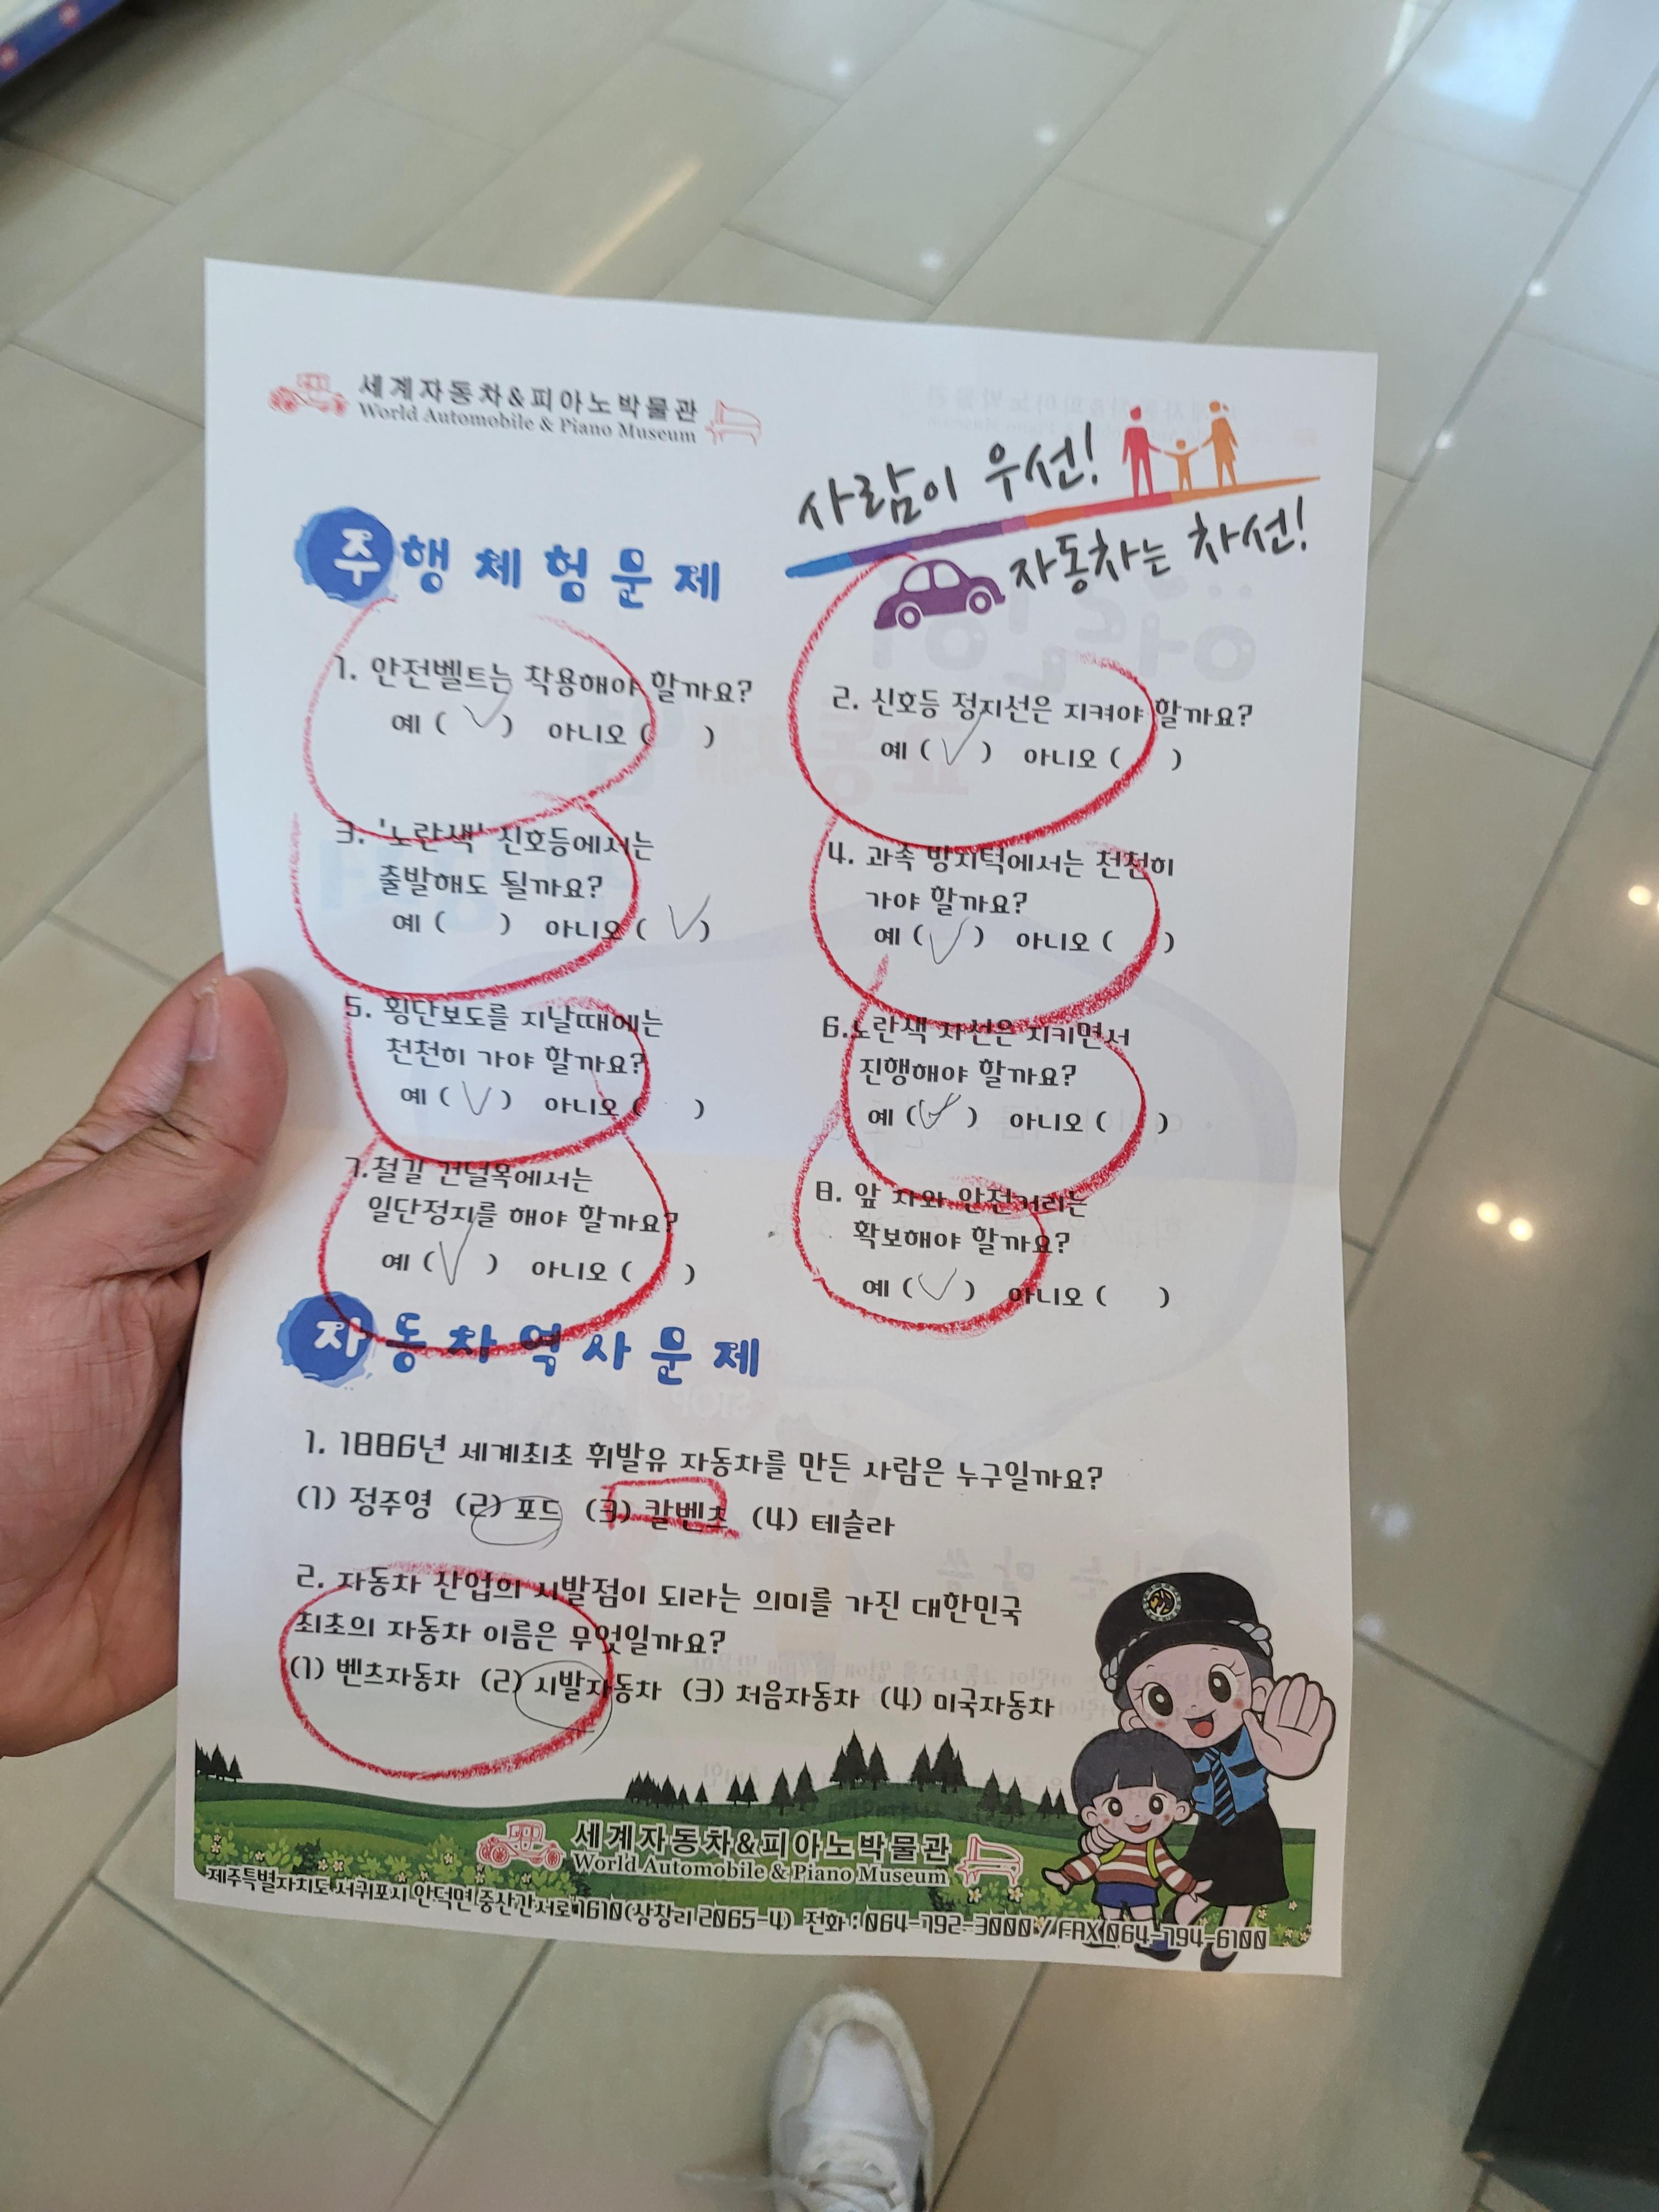 세계자동차&피아노박물관
World Automobile & Piano Museum
사람이 우선!
자동차는 차선!
주행체험문제
1. 안전벨트는 착용해야 할까요?
예 ( ✓ ) 아니오 ( )
2. 신호등 정지선은 지켜야 할까요?
예 ( ✓ ) 아니오 ( )
3. '노란색' 신호등에서는
출발해도 될까요?
예 ( ) 아니오 ( ✓ )
4. 과속 방지턱에서는 천천히
가야 할까요?
예 ( ✓ ) 아니오 ( )
5. 횡단보도를 지날때에는
천천히 가야 할까요?
예 ( ✓ ) 아니오 ( )
6.노란색 차선은 지키면서
진행해야 할까요?
예 ( ✓ ) 아니오 ( )
7.철길 건널목에서는
일단정지를 해야 할까요?
예 ( ✓ ) 아니오 ( )
8. 앞 차와 안전거리는
확보해야 할까요?
예 ( ✓ ) 아니오 ( )
자동차역사문제
1. 1886년 세계최초 휘발유 자동차를 만든 사람은 누구일까요?
(1) 정주영 (2) 포드 (3) 칼벤츠 (4) 테슬라
2. 자동차 산업의 시발점이 되라는 의미를 가진 대한민국
최초의 자동차 이름은 무엇일까요?
(1) 벤츠자동차 (2) 시발자동차 (3) 처음자동차 (4) 미국자동차
세계자동차&피아노박물관
World Automobile & Piano Museum
제주특별자치도 서귀포시 안덕면 중산간서로 1610(상창리 2065-4) 전화 : 064-792-3000 / FAX 064-794-6100